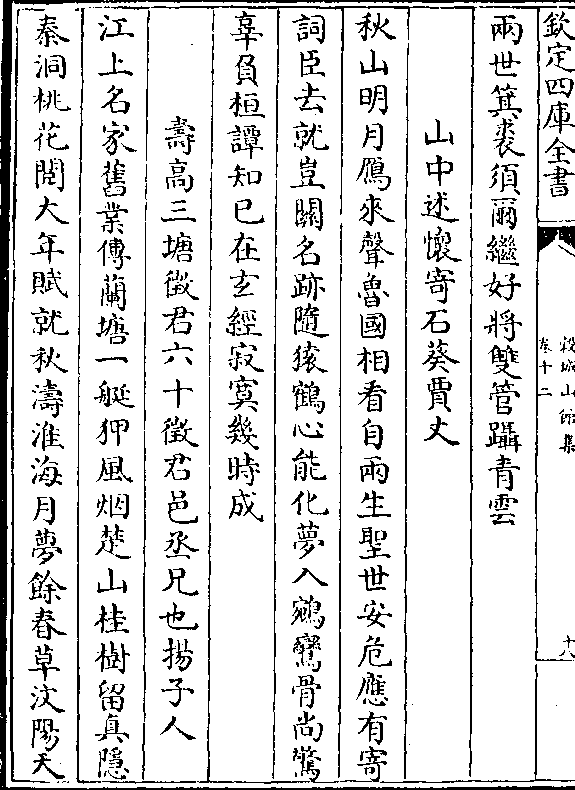 欽定四庫全書
穀城山館集
卷十二
十八
兩世箕裘須爾繼好將雙管躡青雲
山中述懷寄石葵賈丈
秋山明月鴈來聲魯國相看自兩生聖世安危應有寄
詞臣去就豈關名跡隨猿鶴心能化夢入鵷鸞骨尚驚
辜負桓譚知已在玄經寂寞幾時成
壽高三塘徵君六十徵君邑丞兄也揚子人
江上名家舊業傳蘭塘一艇狎風烟楚山桂樹留真隱
秦洞桃花閱大年賦就秋濤淮海月夢餘春草汶陽天